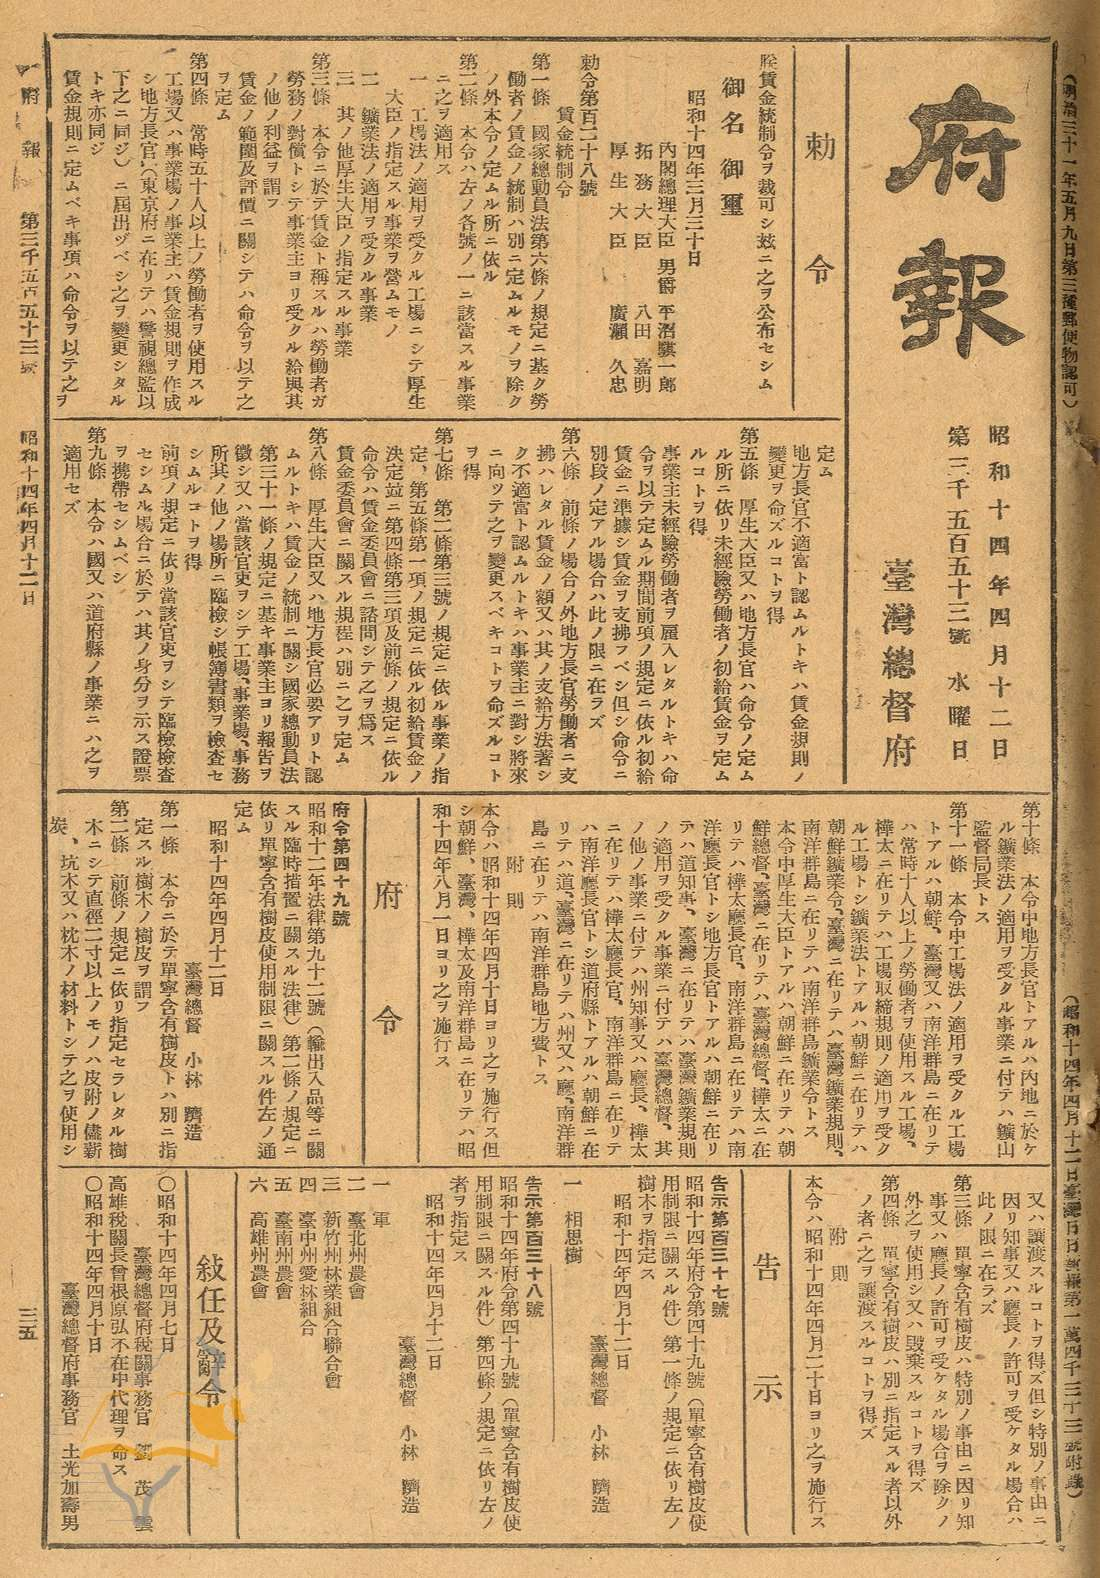 (明治三十一年五月九日第三種郵便物認可)
(昭和十四年四月十二日臺灣日日新報第一萬四千三百三號附錄)
府報
昭和十四年四月十二日
第三千五百五十三號　水曜日
臺灣總督府
勅令
朕賃金統制令ヲ裁可シ玆ニ之ヲ公布セシム
御名御璽
昭和十四年三月三十日
內閣總理大臣　男爵　平沼騏一郞
拓務大臣　八田　嘉明
厚生大臣　廣瀨　久忠
勅令第百二十八號
賃金統制令
第一條　國家總動員法第六條ノ規定ニ基ク勞
働者ノ賃金ノ統制ハ別ニ定ムルモノヲ除ク
ノ外本令ノ定ムル所ニ依ル
第二條　本令ハ左ノ各號ノ一ニ該當スル事業
ニ之ヲ適用ス
一　工場法ノ適用ヲ受クル工場ニシテ厚生
大臣ノ指定スル事業ヲ營ムモノ
二　鑛業法ノ適用ヲ受クル事業
三　其ノ他厚生大臣ノ指定スル事業
第三條　本令ニ於テ賃金ト稱スルハ勞働者ガ
勞務ノ對償トシテ事業主ヨリ受クル給與其
ノ他ノ利益ヲ謂フ
賃金ノ範圍及評價ニ關シテハ命令ヲ以テ之
ヲ定ム
第四條　常時五十人以上ノ勞働者ヲ使用スル
工場又ハ事業場ノ事業主ハ賃金規則ヲ作成
シ地方長官(東京府ニ在リテハ警視總監以
下之ニ同ジ)ニ屆出ヅベシ之ヲ變更シタル
トキ亦同ジ
賃金規則ニ定ムベキ事項ハ命令ヲ以テ之ヲ
定ム
地方長官不適當ト認ムルトキハ賃金規則ノ
變更ヲ命ズルコトヲ得
第五條　厚生大臣又ハ地方長官ハ命令ノ定ム
ル所ニ依リ未經驗勞働者ノ初給賃金ヲ定ム
ルコトヲ得
事業主未經驗勞働者ヲ雇入レタルトキハ命
令ヲ以テ定ムル期間前項ノ規定ニ依ル初給
賃金ニ準據シ賃金ヲ支拂フベシ但シ命令ニ
別段ノ定アル場合ハ此ノ限ニ在ラズ
第六條　前條ノ場合ノ外地方長官勞働者ニ支
拂ハレタル賃金ノ額又ハ其ノ支給方法著シ
ク不適當ト認ムルトキハ事業主ニ對シ將來
ニ向ツテ之ヲ變更スベキコトヲ命ズルコト
ヲ得
第七條　第二條第三號ノ規定ニ依ル事業ノ指
定、第五條第一項ノ規定ニ依ル初給賃金ノ
決定竝ニ第四條第三項及前條ノ規定ニ依ル
命令ハ賃金委員會ニ諮問シテ之ヲ爲ス
賃金委員會ニ關スル規程ハ別ニ之ヲ定ム
第八條　厚生大臣又ハ地方長官必要アリト認
ムルトキハ賃金ノ統制ニ關シ國家總動員法
第三十一條ノ規定ニ基キ事業主ヨリ報吿ヲ
徵シ又ハ當該官吏ヲシテ工場、事業場、事務
所其ノ他ノ場所ニ臨檢シ帳簿書類ヲ檢查セ
シムルコトヲ得
前項ノ規定ニ依リ當該官吏ヲシテ臨檢檢查
セシムル場合ニ於テハ其ノ身分ヲ示ス證票
ヲ攜帶セシムベシ
第九條　本令ハ國又ハ道府縣ノ事業ニハ之ヲ
適用セズ
第十條　本令中地方長官トアルハ內地ニ於ケ
ル鑛業法ノ適用ヲ受クル事業ニ付テハ鑛山
監督局長トス
第十一條　本令中工場法ノ適用ヲ受クル工場
トアルハ朝鮮、臺灣又ハ南洋群島ニ在リテ
ハ常時十人以上ノ勞働者ヲ使用スル工場、
樺太ニ在リテハ工場取締規則ノ適用ヲ受ク
ル工場トシ鑛業法トアルハ朝鮮ニ在リテハ
朝鮮鑛業令、臺灣ニ在リテハ臺灣鑛業規則、
南洋群島ニ在リテハ南洋群島鑛業令トス
本令中厚生大臣トアルハ朝鮮ニ在リテハ朝
鮮總督、臺灣ニ在リテハ臺灣總督、樺太ニ在
リテハ樺太廳長官、南洋群島ニ在リテハ南
洋廳長官トシ地方長官トアルハ朝鮮ニ在リ
テハ道知事、臺灣ニ在リテハ臺灣鑛業規則
ノ適用ヲ受クル事業ニ付テハ臺灣總督、其
ノ他ノ事業ニ付テハ州知事又ハ廳長、樺太
ニ在リテハ樺太廳長官、南洋群島ニ在リテ
ハ南洋廳長官トシ道府縣トアルハ朝鮮ニ在
リテハ道、臺灣ニ在リテハ州又ハ廳、南洋群
島ニ在リテハ南洋群島地方費トス
附則
本令ハ昭和十四年四月十日ヨリ之ヲ施行ス但
シ朝鮮、臺灣、樺太及南洋群島ニ在リテハ昭
和十四年八月一日ヨリ之ヲ施行ス
府令
府令第四十九號
昭和十二年法律第九十二號(輸出入品等ニ關
スル臨時措置ニ關スル法律)第二條ノ規定ニ
依リ單寧含有樹皮使用制限ニ關スル件左ノ通
定ム
昭和十四年四月十二日
臺灣總督　小林　躋造
第一條　本令ニ於テ單寧含有樹皮トハ別ニ指
定スル樹木ノ樹皮ヲ謂フ
第二條　前條ノ規定ニ依リ指定セラレタル樹
木ニシテ直徑二寸以上ノモノハ皮附ノ儘薪
炭、坑木又ハ枕木ノ材料トシテ之ヲ使用シ
又ハ讓渡スルコトヲ得ズ但シ特別ノ事由ニ
因リ知事又ハ廳長ノ許可ヲ受ケタル場合ハ
此ノ限ニ在ラズ
第三條　單寧含有樹皮ハ特別ノ事由ニ因リ知
事又ハ廳長ノ許可ヲ受ケタル場合ヲ除クノ
外之ヲ使用シ又ハ毀棄スルコトヲ得ズ
第四條　單寧含有樹皮ハ別ニ指定スル者以外
ノ者ニ之ヲ讓渡スルコトヲ得ズ
附則
本令ハ昭和十四年四月二十日ヨリ之ヲ施行ス
吿示
吿示第百三十七號
昭和十四年府令第四十九號(單寧含有樹皮使
用制限ニ關スル件)第一條ノ規定ニ依リ左ノ
樹木ヲ指定ス
昭和十四年四月十二日
臺灣總督　小林　躋造
一　相思樹
吿示第百三十八號
昭和十四年府令第四十九號(單寧含有樹皮使
用制限ニ關スル件)第四條ノ規定ニ依リ左ノ
者ヲ指定ス
昭和十四年四月十二日
臺灣總督　小林　躋造
一　軍
二　臺北州農會
三　新竹州林業組合聯合會
四　臺中州愛林組合
五　臺南州農會
六　高雄州農會
敍任及辭令
〇昭和十四年四月七日
臺灣總督府稅關事務官　劉　茂　雲
高雄稅關長曾根原弘不在中代理ヲ命ス
〇昭和十四年四月十日
臺灣總督府事務官　土光加壽男
府報　第三千五百五十三號　昭和十四年四月十二日　三五